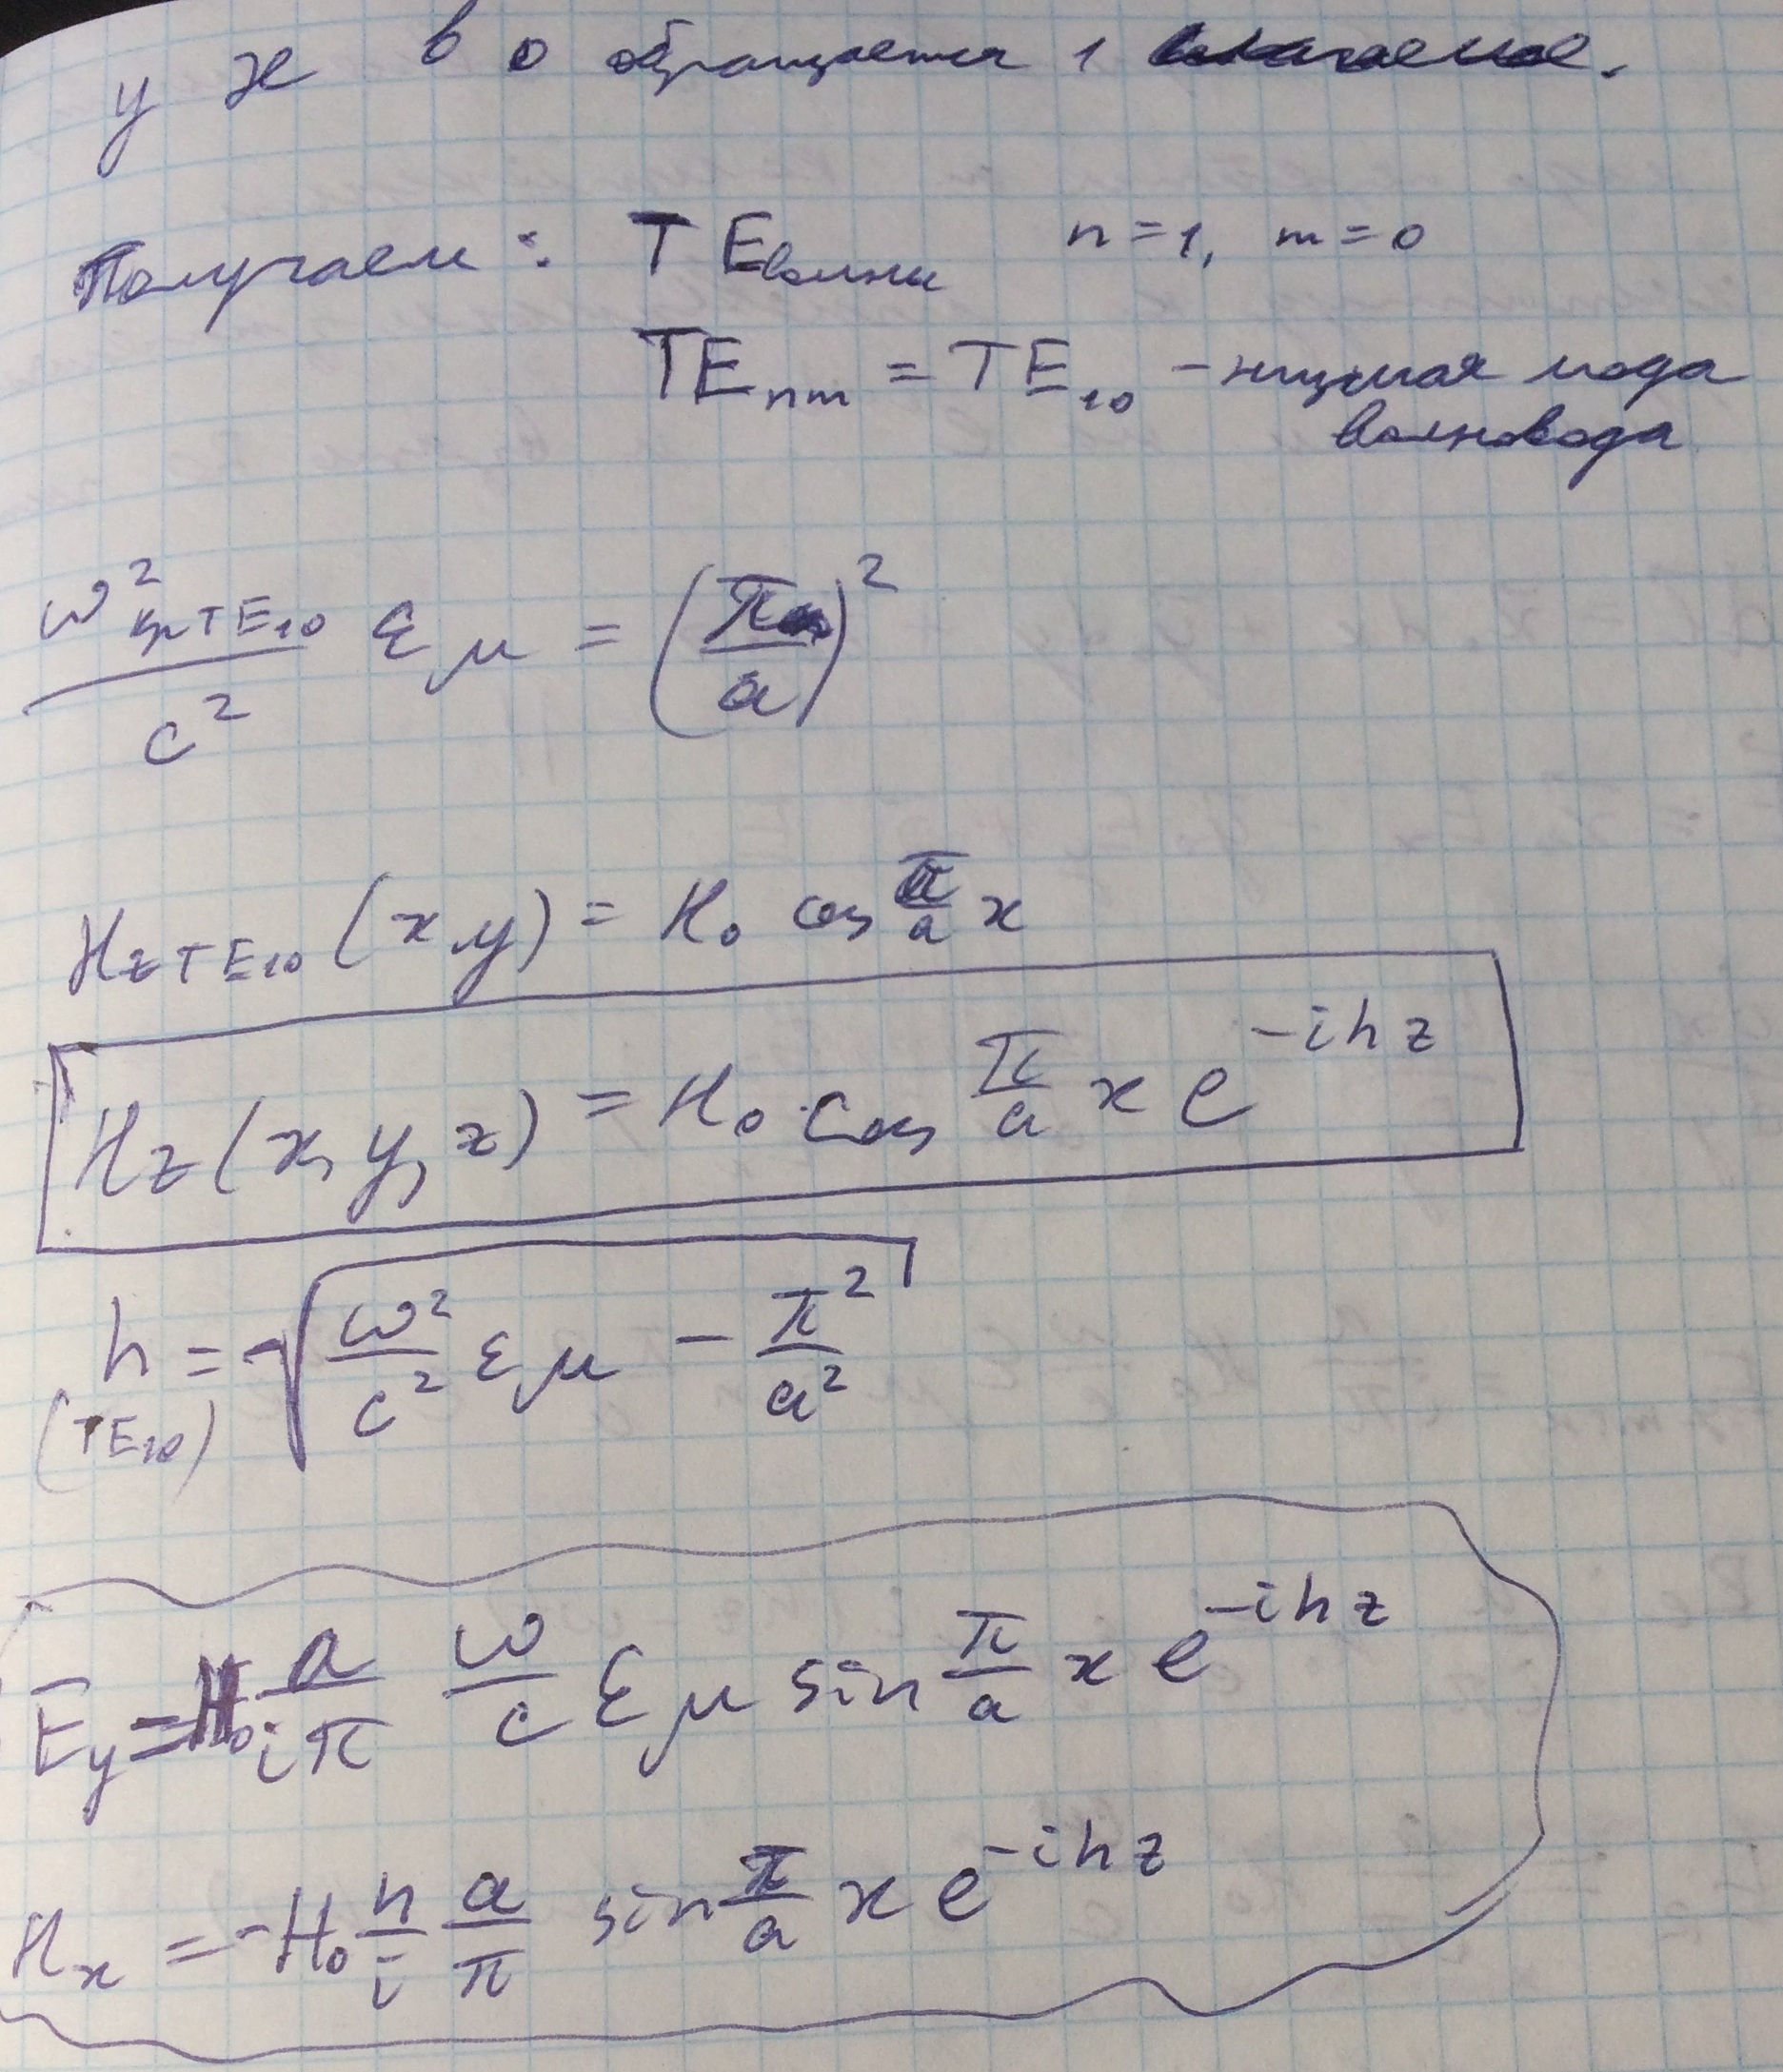 у æ в 0 обращается 1 слагаемое.
Получаем: TEволны n=1, m=0
TEnm = TE10 – низшая мода
волновода
ω²кр TE10 / c² εμ = (π/a)²
Hz TE10 (x,y) = H0 cos π/a x
Hz(x,y,z) = H0 · cos π/a x e^-ihz
h = √(ω²/c² εμ − π²/a²)
(TE10)
Ey = H0 a/iπ ω/c εμ sin π/a x e^-ihz
Hx = -H0 h/i a/π sin π/a x e^-ihz